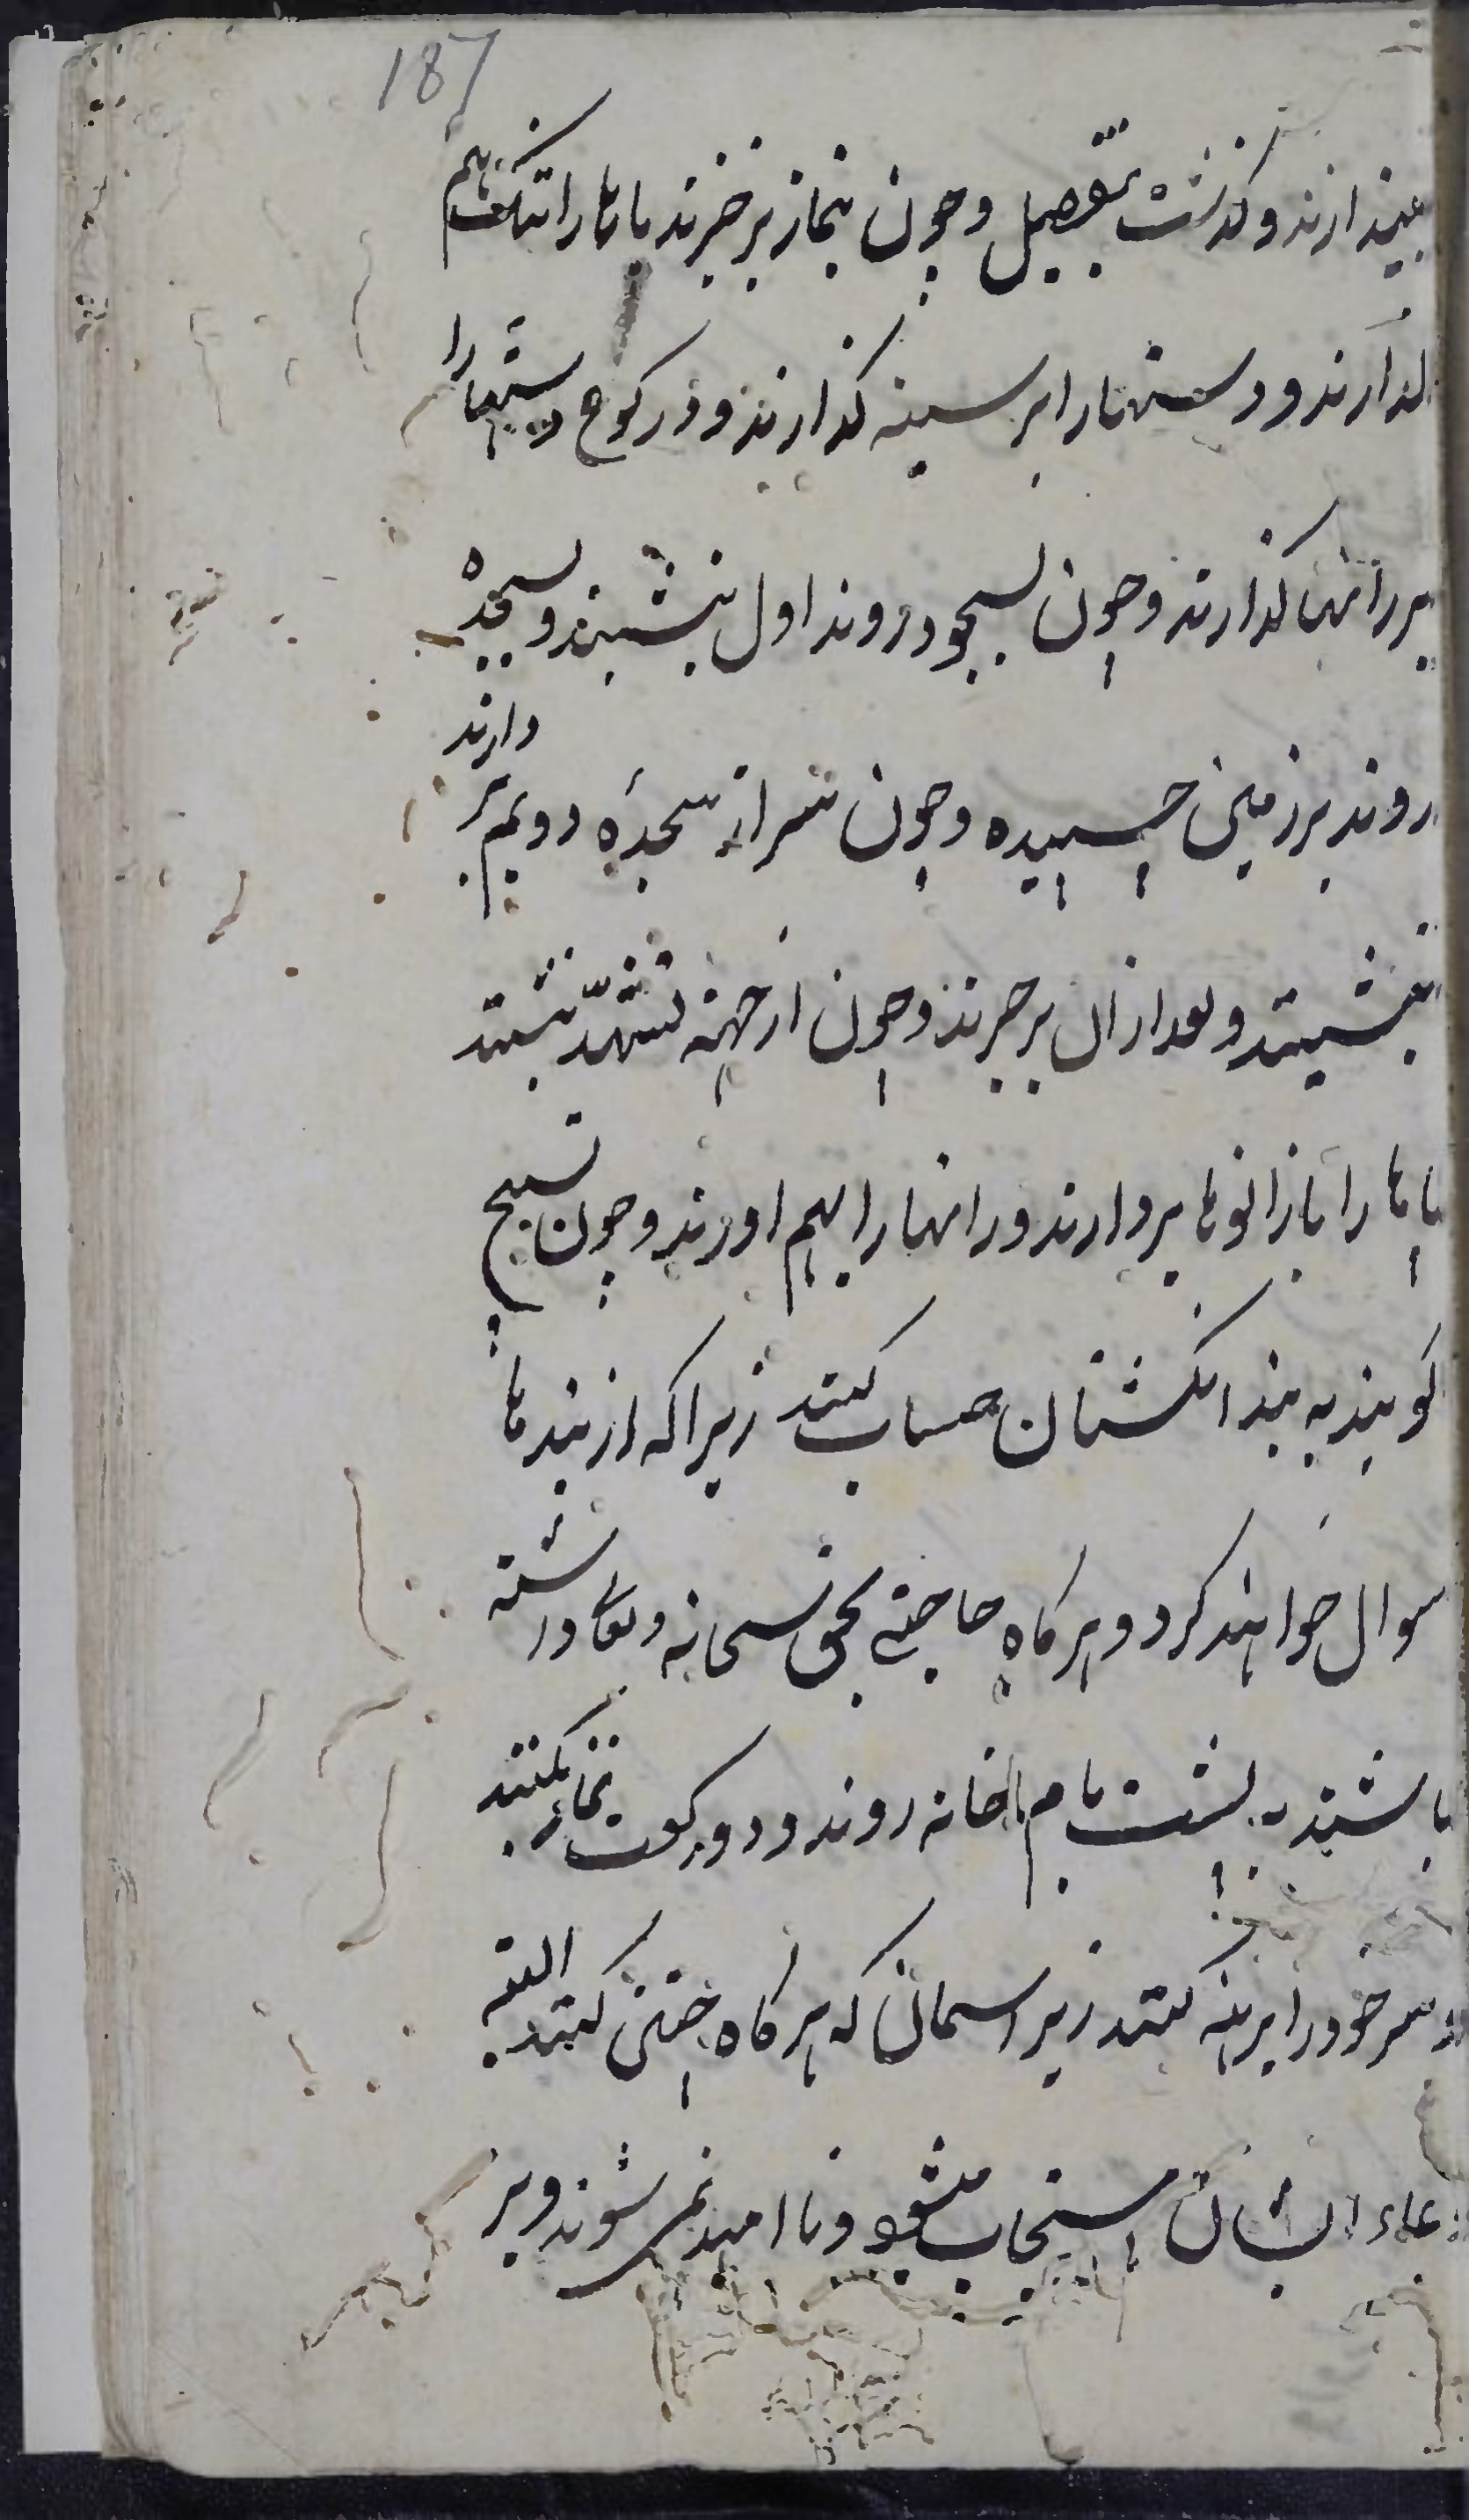 187
بیندازند و گذشت بتفصیل و چون بنماز برخیزند پاها را تنگ هم
گذارند و دستها را بر سینه گذارند و در رکوع دستها را
بر رانها گذارند و چون بسجود روند اول بنشینند و بسجده
روند بر زمین چسبیده و چون سر از سجدهٔ دویم بر دارند
بنشینند و بعد از آن برخیزند و چون از جهته تشهد نشینند
پاها را با زانوها بردارند و رانها را بهم اورند و چون تسبیح
گویند به بند انگشتان حساب کنند زیرا که از بندها
سوال خواهند کرد و هرگاه حاجتی بحق سبحانه و تعا داشته
باشند به پشت بام خانه روند و دو رکعت نماز بکنند
و سر خود را برهنه کنند زیر اسمان که هرگاه چنین کنند البته
دعاء ایشان مستجاب میشود و نا امید نمی شوند و بر